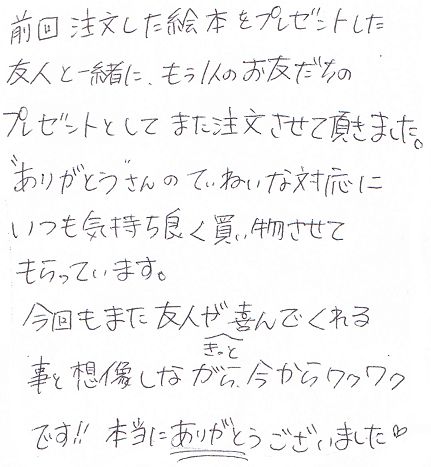 前回注文した絵本をプレゼントした
友人と一緒に、もう1人のお友だちの
プレゼントとしてまた注文させて頂きました。
"ありがとう"さんのていねいな対応に
いつも気持ち良く買い物させて
もらっています。
今回もまた友人が喜んでくれる
きっと
事を想像しながら、今からワクワク
です!! 本当にありがとうございました♡